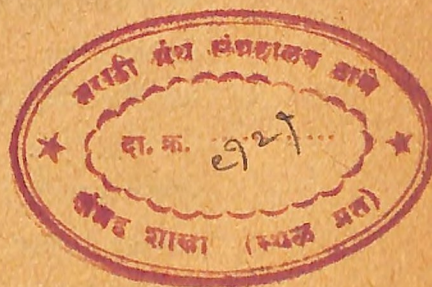 मराठी ग्रंथ संग्रहालय ठाणे
दा. क्र.
संदर्भ शाखा (स्थळ प्रत)